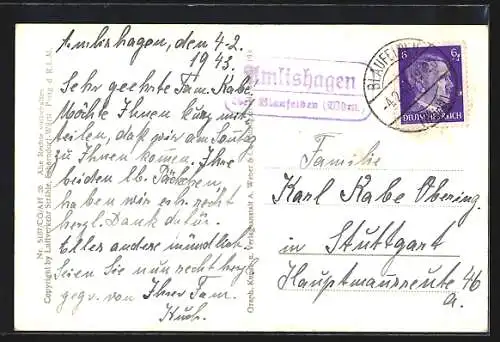 Amlishagen, den 4-2.
1943.
Sehr geehrte Fam. Kabe.
Möchte Ihnen kurz mit
teilen, daß wir am Sonntag
zu Ihnen kommen. Ihre
beiden lb. Päckchen,
haben wir erh. recht
herzl. Dank dafür.
Alles andere mündlich.
Seien Sie nun recht herzl.
gegr. von Ihrer Fam.
Huch.
Amlishagen
über Blaufelden (Württ.)
BLAUFELDEN
6 6
DEUTSCHES REICH
Familie
Karl Kabe Obering.
in Stuttgart
Hauptmannsreute 46
a.
Copyright by Luftverkehr Strähle, Schorndorf-Württ.